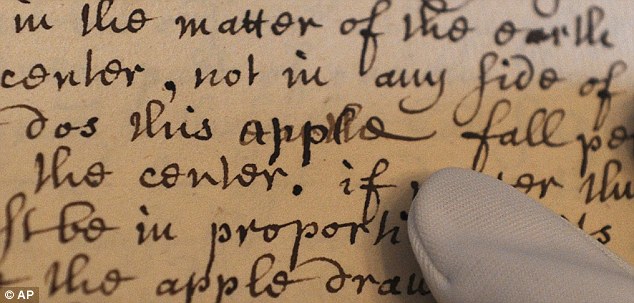 in the matter of the earth
center, not in any side of
dos this apple fall pe
the center. if ter thu
st be in proporti
the apple draw
© AP